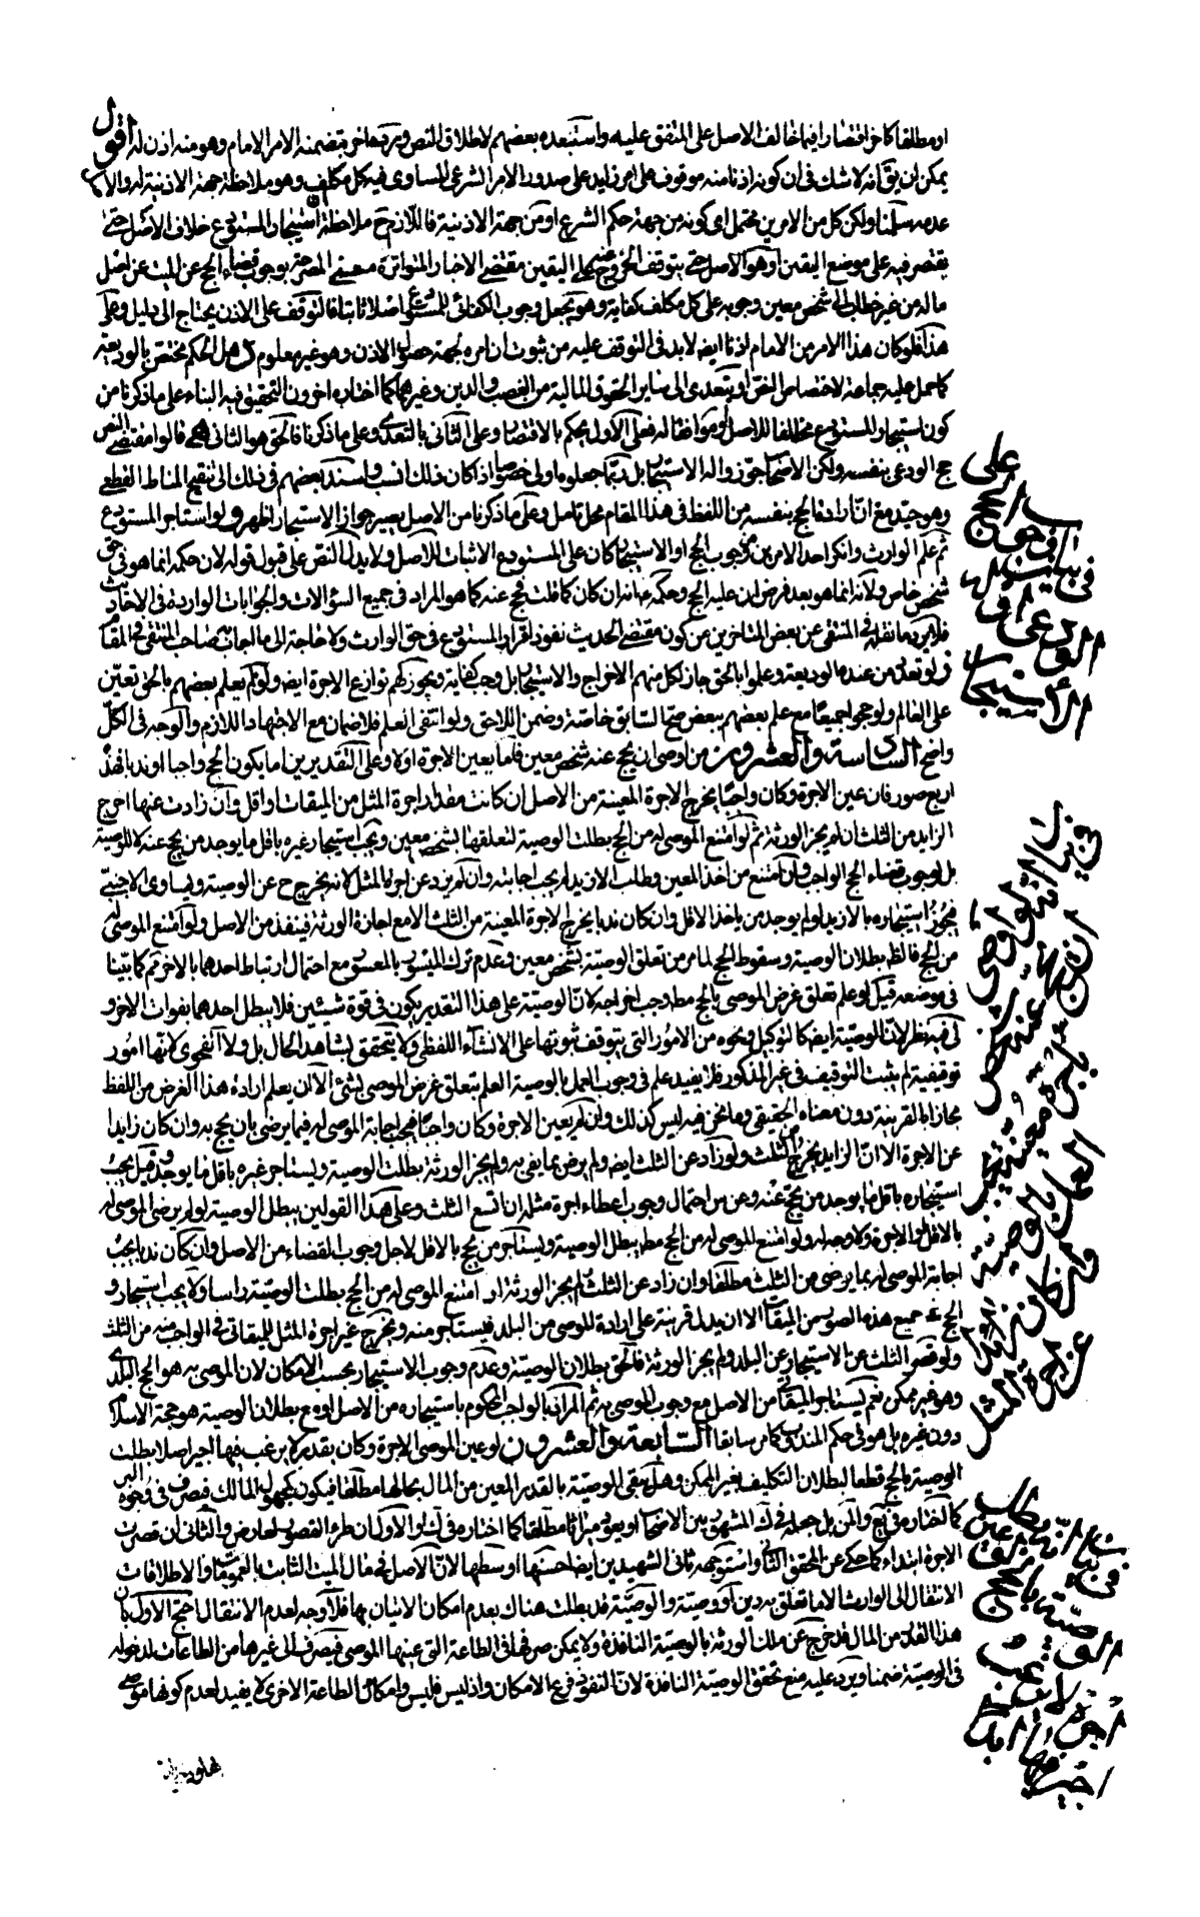 او مطلقا كاخر اقتصارا فيما خالف الاصل على المتفق عليه واستبعده بعضهم لاطلاق النص وربما اخر بتضمنه الامر الامام وهو منه اذن له اقول
يمكن ان يق انه لا شك في ان كونه اذنا منه موقوف على امر زايد على صدور الامر الشرعي المساوي فيه كل مكلف وهو ملاحظة جهة الاذنية له والاصل
عدمه سلمنا ولكن كل من الامرين محتمل اي كونه من جهة حكم الشرع او من جهة الاذنية فاللازم ح ملاحظة ان استيجار المستودع خلاف الاصل حتى
يقتصر فيه على موضع اليقين او هو الاصل حتى يتوقف الخروج عنه على اليقين مقتضى الاخبار المتواترة معنى المصرحة بوجوب قضاء الحج عن الميت عن اصل
ماله من غير خطاب الى شخص معين وجوبه على كل مكلف كفاية وهو يجعل وجوب الكفائي للمستودع اصلا ثابتا فالتوقف على الاذن يحتاج الى دليل وعلى
هذا فلو كان هذا الامر من الامام اذنا ايضا لابد في التوقف عليه من ثبوت ان امره لجهة حصول الاذن وهو غير معلوم هل الحكم مختص بالوديعة
كما حمل عليه جماعة لاختصاص النص او يتعدى الى ساير الحقوق المالية من الغصب والدين وغيرهما كما اختاره اخرون التحقيق فيه البناء على ما ذكرنا من
كون استيجار المستودع مخالفا للاصل او موافقا له فعلى الاول يحكم بالاقتصار وعلى الثاني بالتعدي وعلى ما ذكرنا فالحق هو الثاني قالوا مقتضى النص
حج الودعي بنفسه ولكن الاصحاب جوزوا له الاستيجار بل ربما جعلوه اولى خصوصا اذا كان ذلك انسب واسند بعضهم في ذلك الى تنقيح المناط القطعي
وهو جيد مع ان ارادة الحج بنفسه من اللفظ في هذا المقام محل تامل وعلى ما ذكرنا من الاصل يصير جواز الاستيجار اظهر ولو استاجر المستودع
ثم علم الوارث وانكر احد الامرين من وجوب الحج او الاستيجار كان على المستودع الاثبات للاصل ولا يدل النص على قبول قوله لان حكمه انما هو في حق
شخص خاص ولانه انما هو بعد فرض ان عليه الحج وحكمه ع انه ان كان كما قلت فحج عنه كما هو المراد في جميع السؤالات والجوابات الواردة في الاحاديث
فلا يرد ما نقله في المنتقى عن بعض المتاخرين من كون مقتضى الحديث نفوذ اقرار المستودع في حق الوارث ولا حاجة الى ما اجاب صاحب المنتقى في المقام
ولو تعدد من عنده الوديعة وعلموا بالحق جاز لكل منهم الاخراج والاستيجار بل وجب كفاية ويجوز لهم توازيع الاجرة ايضا ولو لم يعلم بعضهم بالحق تعين
على العالم ولو حجوا جميعا مع علم بعضهم ببعض صح السابق خاصة وضمن اللاحق ولو انتفى العلم فلا ضمان مع الاجتهاد اللازم والوجه في الكل
واضح السادسة والعشرون من اوصى ان يحج عنه شخص معين فاما يعين الاجرة او لا وعلى التقديرين اما يكون الحج واجبا او ندبا فهذه
اربع صور فان عين الاجرة وكان واجبا يخرج الاجرة المعينة من الاصل ان كانت مقدار اجرة المثل من الميقات او اقل وان زادت عنها اخرج
الزايد من الثلث ان لم يجز الورثة ثم لو امتنع الموصى له من الحج بطلت الوصية لتعلقها بشخص معين ويجب استيجار غيره باقل ما يوجد من يحج عنه لا للوصية
بل لوجوب قضاء الحج الواجب وان امتنع من اخذ المعين وطلب الازيد لم يجب اجابته وان لم يزد عن اجرة المثل لانه يخرج ح عن الوصية ويساوي الاجنبي
فيجوز استيجاره بالازيد لو لم يوجد من ياخذ الاقل وان كان ندبا يخرج الاجرة المعينة من الثلث الا مع اجازة الورثة فينفذ من الاصل ولو امتنع الموصى له
من الحج فالظ بطلان الوصية وسقوط الحج لما مر من تعلق الوصية بشخص معين وعدم ترك الميسور بالمعسور مع احتمال ارتباط احدهما بالاخر كما بينا
في موضعه قيل لو علم تعلق غرض الموصى بالحج مط وجب اخراجه لان الوصية على هذا التقدير يكون في قوة شيئين فلا يبطل احدهما بفوات الاخر و
لي فيه نظر لان الوصية ايضا كالتوكيل ونحوه من الامور التي يتوقف ثبوتها على الانشاء اللفظي ولا يتحقق بشاهد الحال بل ولا الفحوى لانها امور
توقيفية لم يثبت التوقيف في غير المذكور فلا يفيد علم في وجوب العمل بالوصية العلم بتعلق غرض الموصي بشئ الا ان يعلم ارادة هذا الغرض من اللفظ
مجازا بالقرينة دون معناه الحقيقي وما نحن فيه ليس كذلك وان لم يعين الاجرة وكان واجبا فيجب اجابة الموصى له فيما يرضى بان يحج به وان كان زايدا
عن الاجرة الا ان الزايد يخرج من الثلث ولو زاد عن الثلث ايضا ولم يرض بما يفي به ولم يجز الورثة بطلت الوصية ويستاجر غيره باقل ما يوجد وقيل يجب
استيجاره باقل ما يوجد من يحج عنه وعن س احتمال وجوب اعطاء اجرة مثله ان اتسع الثلث وعلى هذا القولين يبطل الوصية لو لم يرض الموصى له
بالاقل او الاجرة ولا وجه له ولو امتنع الموصى له من الحج مط يبطل الوصية ويستاجر من يحج بالاقل لاجل وجوب القضاء من الاصل وان كان ندبا يجب
اجابة الموصى له بما يرضى من الثلث مطلقا وان زاد عن الثلث ولم يجز الورثة او امتنع الموصى له من الحج بطلت الوصية راسا ولا يجب استيجار و
الحج في جميع هذه الصور من الميقات الا ان يدل قرينة على ارادة الموصى من البلد فيستاجر منه ويخرج غير اجرة المثل للميقاتي في الواجب منه من الثلث
ولو قصر الثلث عن الاستيجار عن البلد ولم يجز الورثة فالحق بطلان الوصية وعدم وجوب الاستيجار بحسب الامكان لان الموصى به هو الحج البلدي
وهو غير ممكن نعم يستاجر الميقاتي من الاصل مع وجوب الموصى به ثم المراد بالواجب المحكوم باستيجاره من الاصل لو مع بطلان الوصية هو حجة الاسلام
دون غيره بل هو في حكم المندوب كما مر سابقا السابعة والعشرون لو عين الموصي الاجرة وكان بقدر لا يرغب فيها اجير اصلا بطلت
الوصية بالحج قطعا لبطلان التكليف بغير الممكن وهل يبقى الوصية بالقدر المعين من المال بحالها مطلقا فيكون كمجهول المالك فيصرف في وجوه البر
كما اختاره في يع والن بل جعله في ك المشهور بين الاصحاب او يعود ميراثا مطلقا كما اختاره في ك او الاول ان طرء القصور لعارض والثاني ان قصرت
الاجرة ابتداء كما حكي عن المحقق الثاني واستوجهه ثاني الشهيدين ايضا احسنها اوسطها لان الاصل في مال الميت الثابت بالعمومات والاطلاقات
الانتقال الى الوارث الا ما تعلق به دين او وصية والوصية قد بطلت هناك بعدم امكان الاتيان بها فلا وجه لعدم الانتقال احتج الاول بان
هذا القدر من المال قد خرج عن ملك الورثة بالوصية النافذة ولا يمكن صرفها في الطاعة التي عينها الموصي فيصرف الى غيرها من الطاعات لدخوله
في الوصية ضمنا ويرد عليه منع تحقق الوصية النافذة لان النفوذ فرع الامكان واذ ليس فليس وامكان الطاعة الاخرى لا يفيد لعدم كونها موصى
على
الحج
في بيان
الودعي
الاستيجار
في بيان انه لو اوصى
ان يحج عنه شخص
باجرة معينة يجب
العمل بالوصية
وان كان زايدا
عن اجرة المثل
في بيان انه
الوصية بالحج
اجرة لا يرغب
اجير فيها ابدا